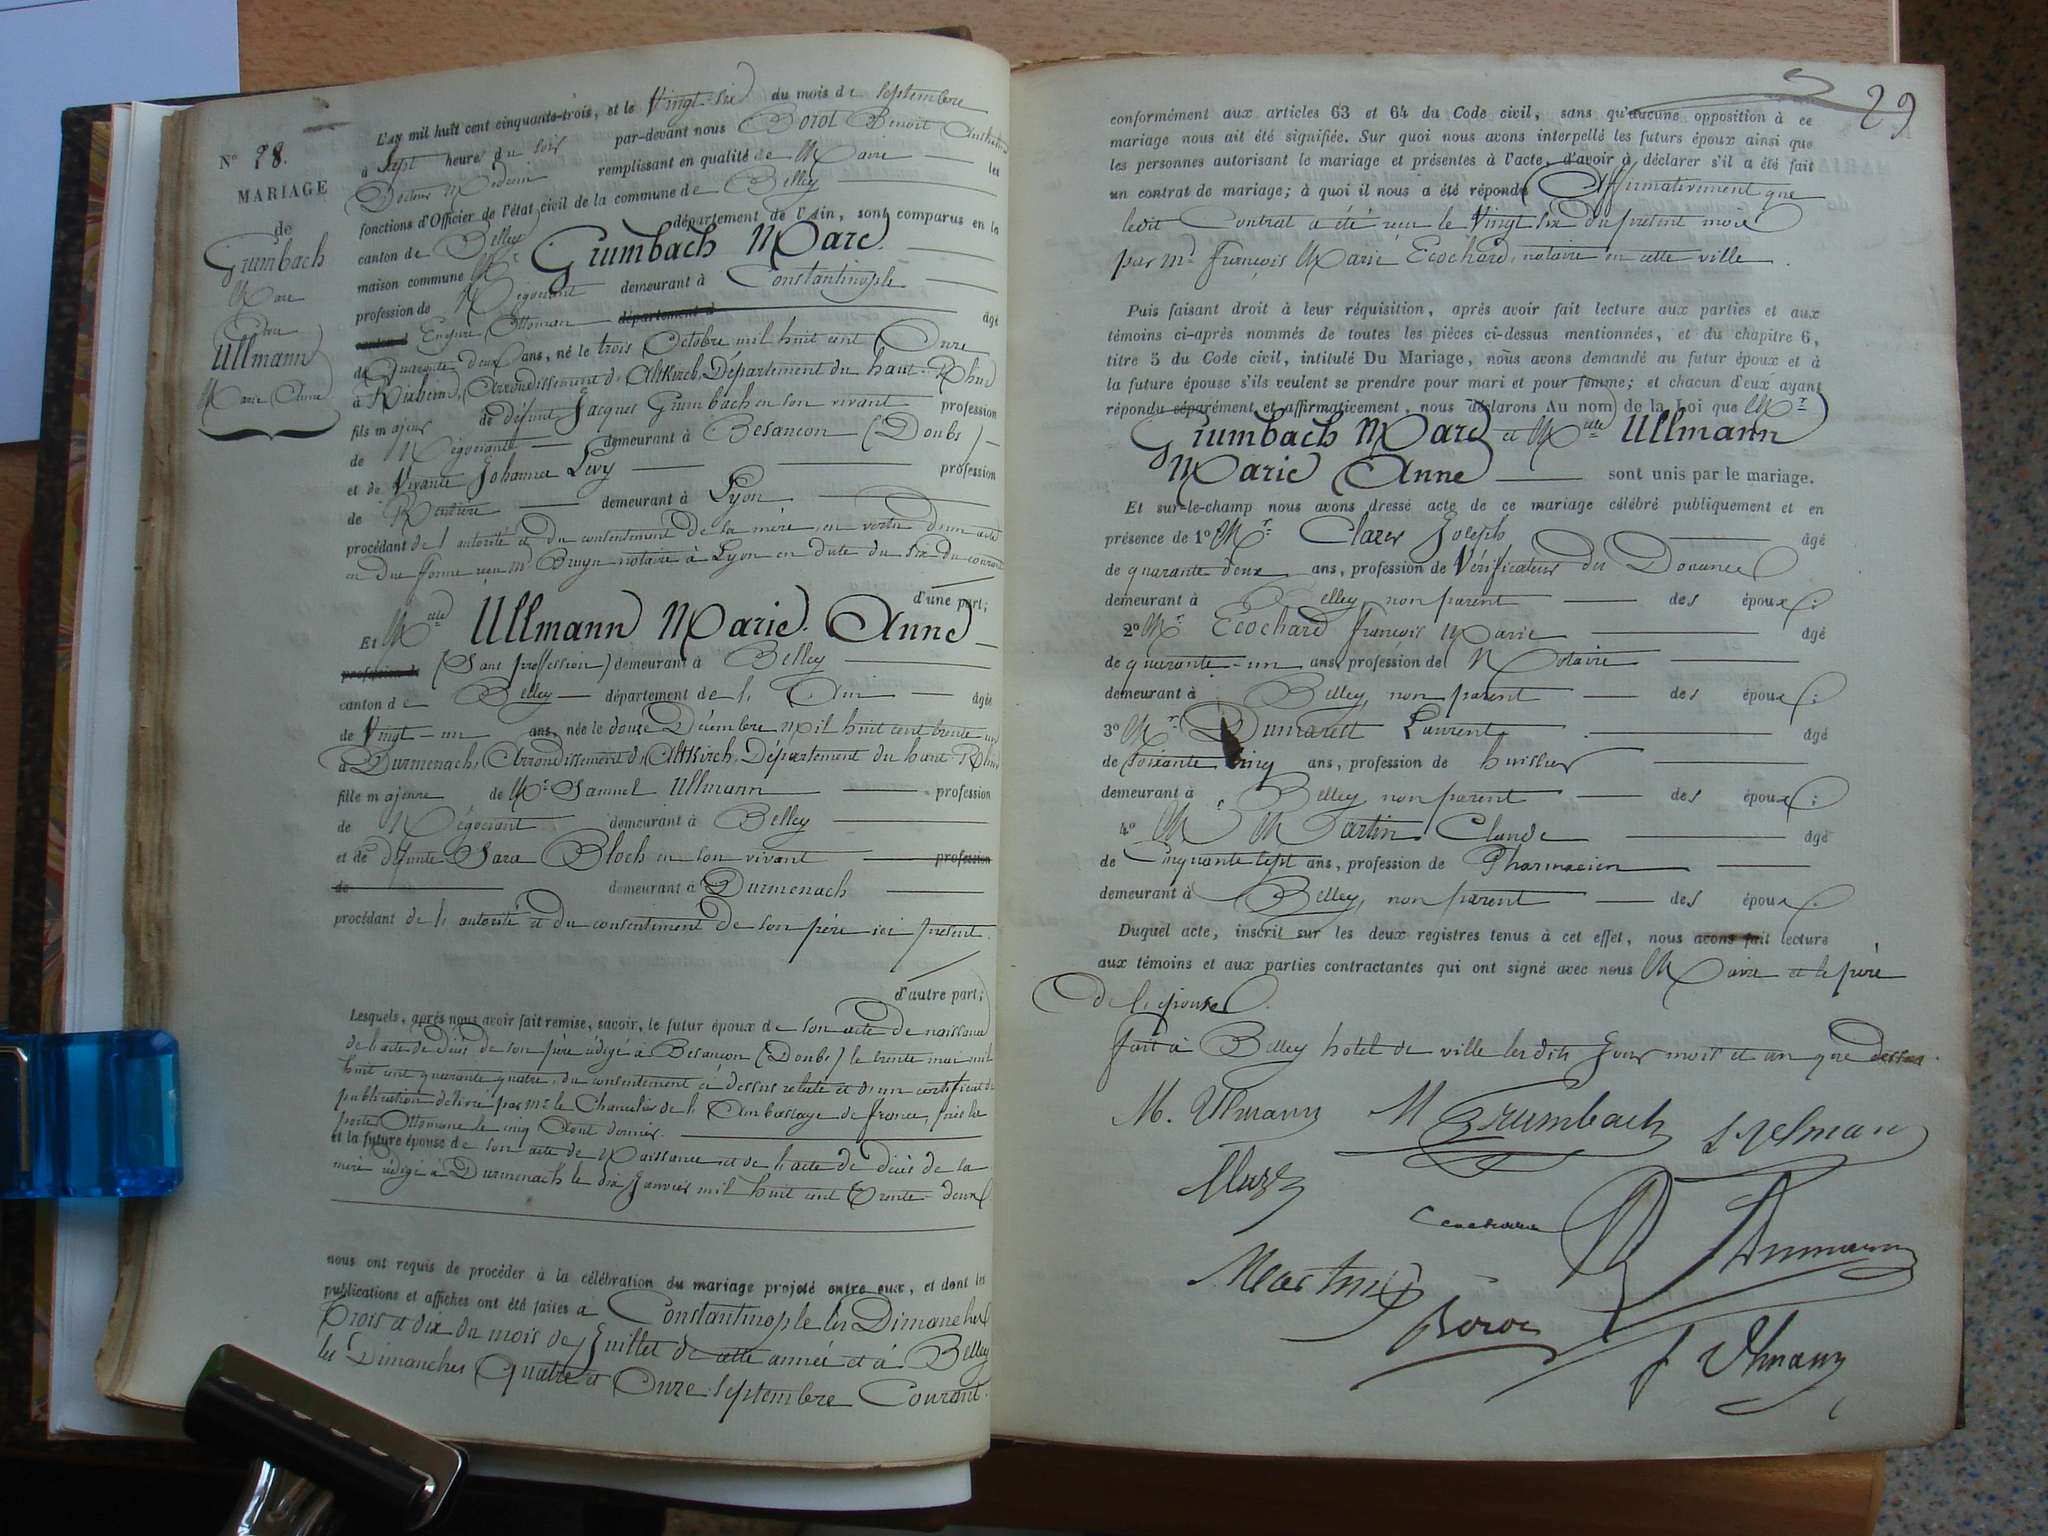 N° 28.
MARIAGE
de
Grumbach
Marc
Ullmann
Marie Anne
L'an mil huit cent cinquante-trois, et le Vingt-six du mois de Septembre
à Sept heures du soir par-devant nous Borot Benoit
Docteur Médecin remplissant en qualité de Maire les
fonctions d'Officier de l'état civil de la commune de Belley
canton de Belley département de l'Ain, sont comparus en la
maison commune Mr Grumbach Marc
profession de Négociant demeurant à Constantinople
canton d Empire Ottoman département d âgé
de Quarante deux ans, né le trois Octobre mil huit cent Onze
à Rixheim, Arrondissement d'Altkirch, Département du haut-Rhin
fils majeur de défunt Jacques Grumbach en son vivant profession
de Négociant demeurant à Besançon (Doubs)
et de Vivante Johanna Levy profession
de Rentière demeurant à Lyon
procédant de l'autorité et du consentement de la mère, en vertu d'un acte
en due forme reçu Mr Bruyn notaire à Lyon en date du six du courant
d'une part;
Et Melle Ullmann Marie Anne
profession de (Sans profession) demeurant à Belley
canton de Belley département de l'Ain âgée
de Vingt-un ans, née le douze Décembre mil huit cent trente un
à Durmenach, Arrondissement d'Altkirch, Département du haut-Rhin
fille majeure de Mr Samuel Ullmann profession
de Négociant demeurant à Belley
et de défunte Sara Bloch en son vivant profession
de demeurant à Durmenach
procédant de l'autorité et du consentement de son père ici présent.
d'autre part;
Lesquels, après nous avoir fait remise, savoir, le futur époux de son acte de naissance
de l'acte de décès de son père rédigé à Besançon (Doubs) le trente mai mil
huit cent quarante quatre, du consentement ci dessus relaté et d'un certificat de
publication délivré par Mr le Chancelier de l'Ambassaye de france, près la
porte Ottomane le cinq Aout dernier.
et la future épouse de son acte de Naissance et de l'acte de décès de la
mère rédigé à Durmenach le dix Janvier mil huit cent Trente-deux
nous ont requis de procéder à la célébration du mariage projeté entre eux, et dont les
publications et affiches ont été faites à Constantinople les Dimanches
Trois et dix du mois de Juillet de cette année et à Belley
les Dimanches Quatre et Onze Septembre Courant.
29
conformément aux articles 63 et 64 du Code civil, sans qu'aucune opposition à ce
mariage nous ait été signifiée. Sur quoi nous avons interpellé les futurs époux ainsi que
les personnes autorisant le mariage et présentes à l'acte, d'avoir à déclarer s'il a été fait
un contrat de mariage; à quoi il nous a été répondu Affirmativement que
ledit Contrat a été reçu le Vingt six du présent mois
par Mr françois Marie Ecochard, notaire en cette ville.
Puis faisant droit à leur réquisition, après avoir fait lecture aux parties et aux
témoins ci-après nommés de toutes les pièces ci-dessus mentionnées, et du chapitre 6,
titre 5 du Code civil, intitulé Du Mariage, nous avons demandé au futur époux et à
la future épouse s'ils veulent se prendre pour mari et pour femme; et chacun d'eux ayant
répondu séparément et affirmativement, nous déclarons Au nom de la Loi que Mr
Grumbach Marc et Melle Ullmann
Marie Anne sont unis par le mariage.
Et sur-le-champ nous avons dressé acte de ce mariage célébré publiquement et en
présence de 1° Mr Joseph âgé
de quarante deux ans, profession de Vérificateur des Douanes
demeurant à Belley, non parent des époux;
2° Mr Ecochard françois Marie âgé
de quarante-un ans, profession de Notaire
demeurant à Belley, non parent des époux;
3° Mr Dumarest Laurent âgé
de soixante cinq ans, profession de huissier
demeurant à Belley, non parent des époux;
4° Mr Martin Claude âgé
de Cinquante sept ans, profession de Pharmacien
demeurant à Belley, non parent des époux.
Duquel acte, inscrit sur les deux registres tenus à cet effet, nous avons fait lecture
aux témoins et aux parties contractantes qui ont signé avec nous Maire et le père
de l'épouse.
fait à Belley hotel de ville lesdits Jour mois et an que dessus.
M. Ullmann M Grumbach
Martin
Borot